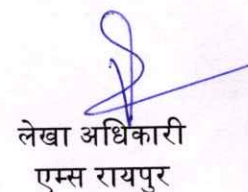 लेखा अधिकारी
एम्स रायपुर